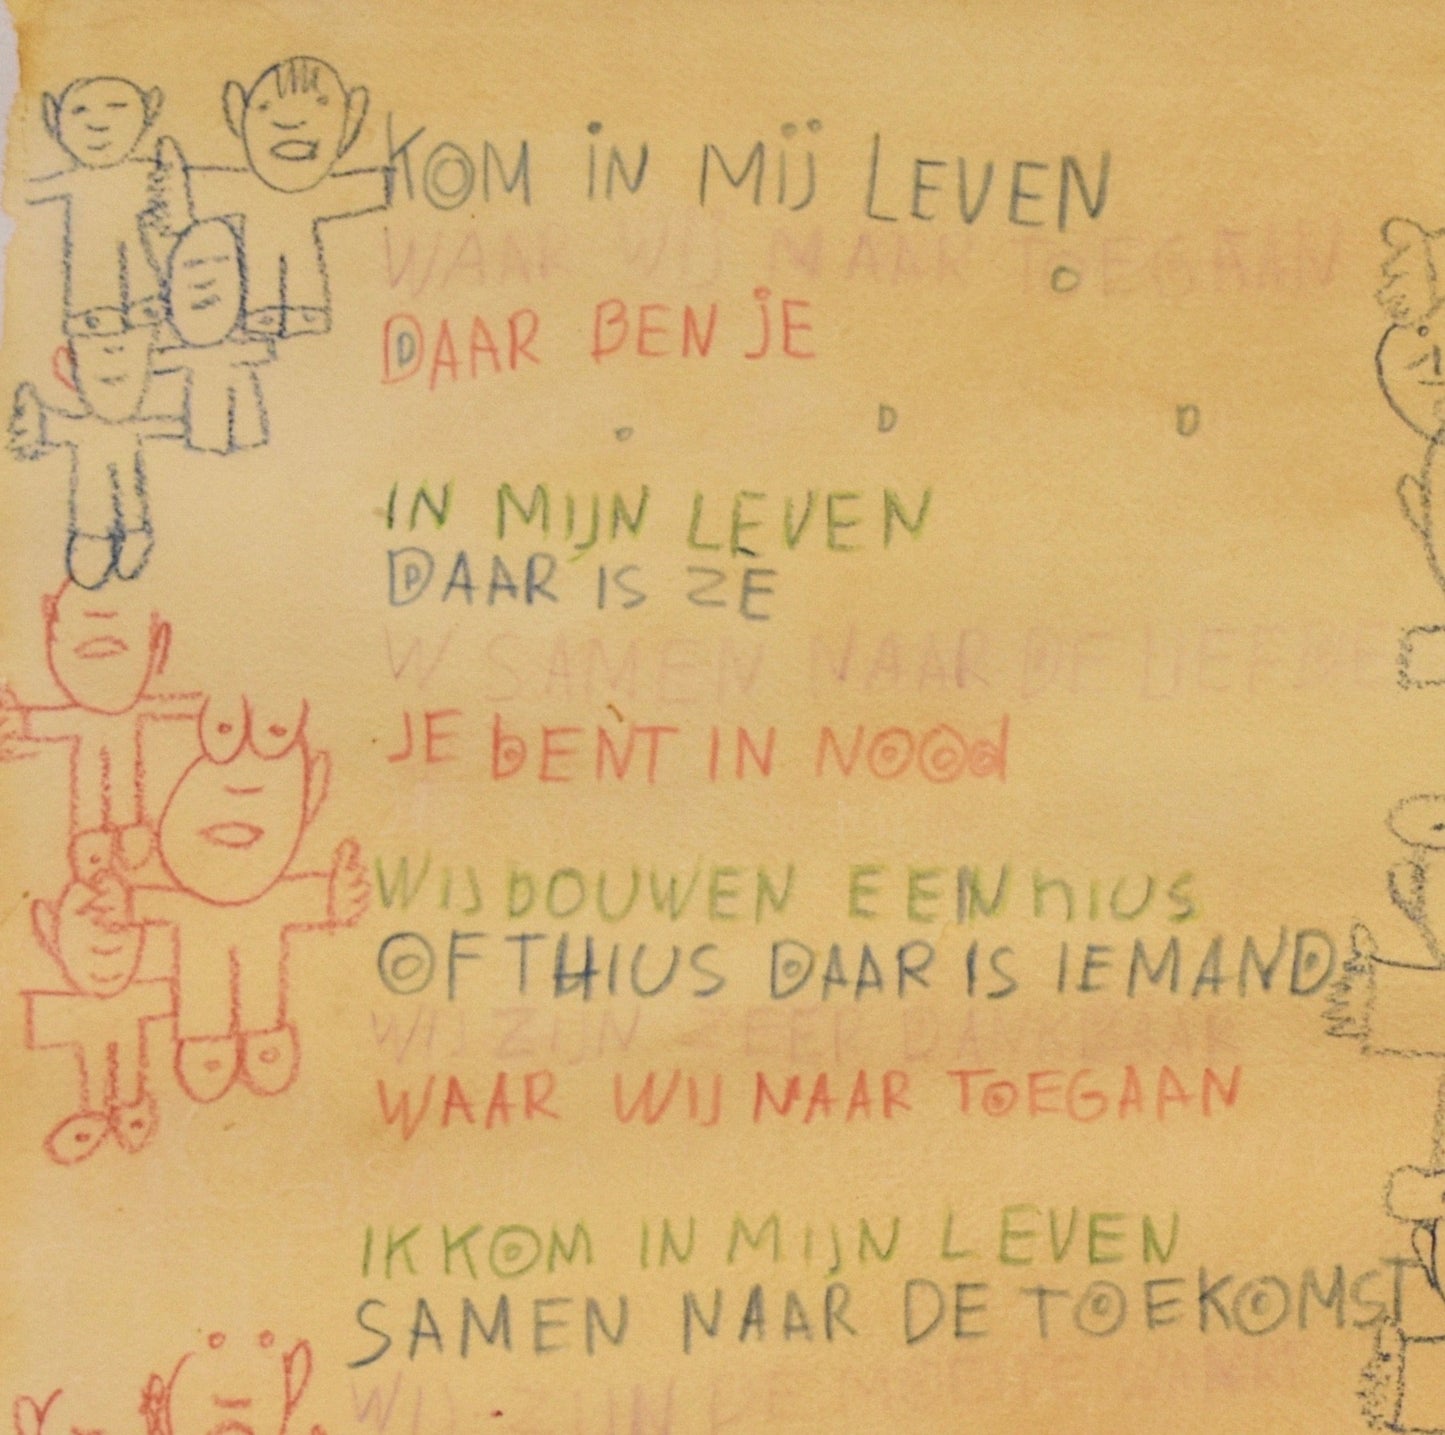 KOM IN MIJ LEVEN
WAAR WIJ NAAR TOEGAAN
DAAR BEN JE
IN MIJN LEVEN
DAAR IS ZE
W SAMEN NAAR DE LIEFDE
JE bENT IN NOOd
WIJ bOUWEN EEN hIUS
OF THIUS DAAR IS IEMAND
WIJ ZIJN ZEER DANKBAAR
WAAR WIJ NAAR TOEGAAN
IK KOM IN MIJN LEVEN
SAMEN NAAR DE TOEKOMST
WIJ ZIJN